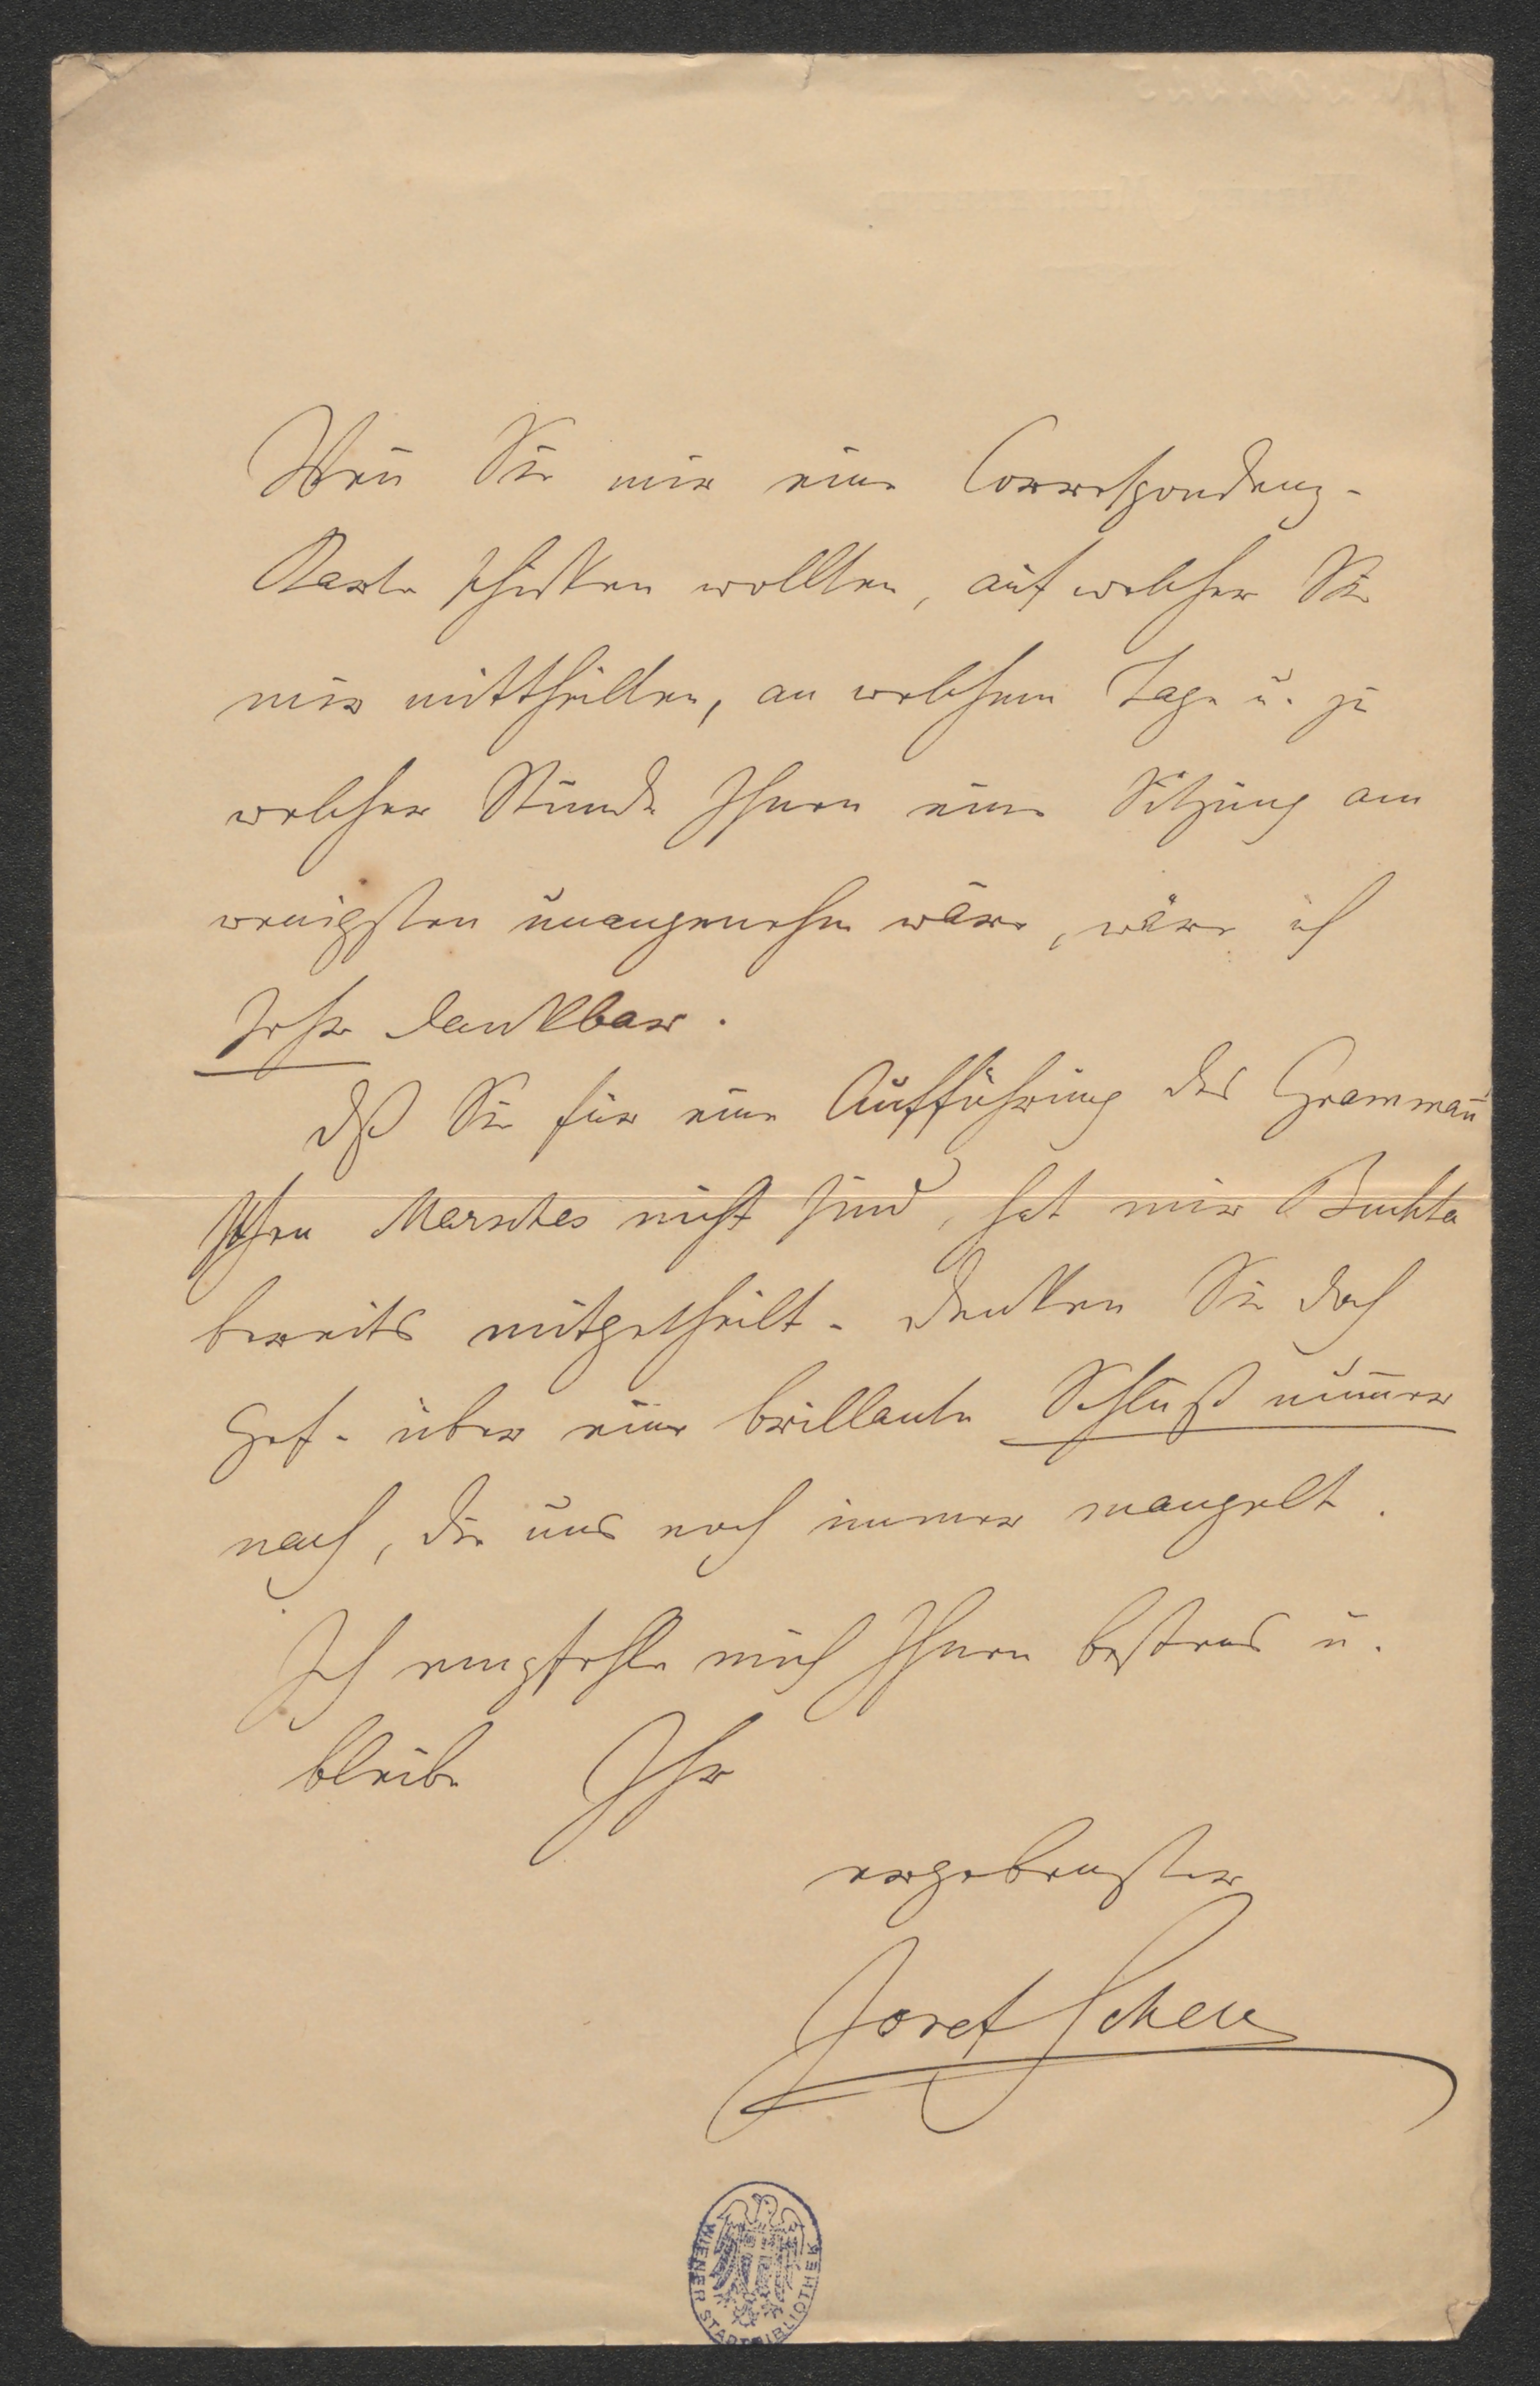 Wen̄ Sie mir eine Correspondenz-
Karte schicken wollten, auf welcher Sie
mir mittheilten, an welchem Tage u. zu
welcher Stunde Ihnen eine Sitzung am
wenigsten unangenehm wäre, wäre ich
sehr dankbar.
Dß Sie für eine Aufführung des Gramman̄
schen Marsches nicht sind, hat mir Buchta
bereits mitgetheilt. Denken Sie doch
Gef. über eine brillante Schlußnum̄er
nach, die uns noch immer mangelt.
Ich empfehle mich Ihnen bestens u.
bleibe Ihr
ergebenster
Josef Scheu
WIENER STADTBIBLIOTHEK